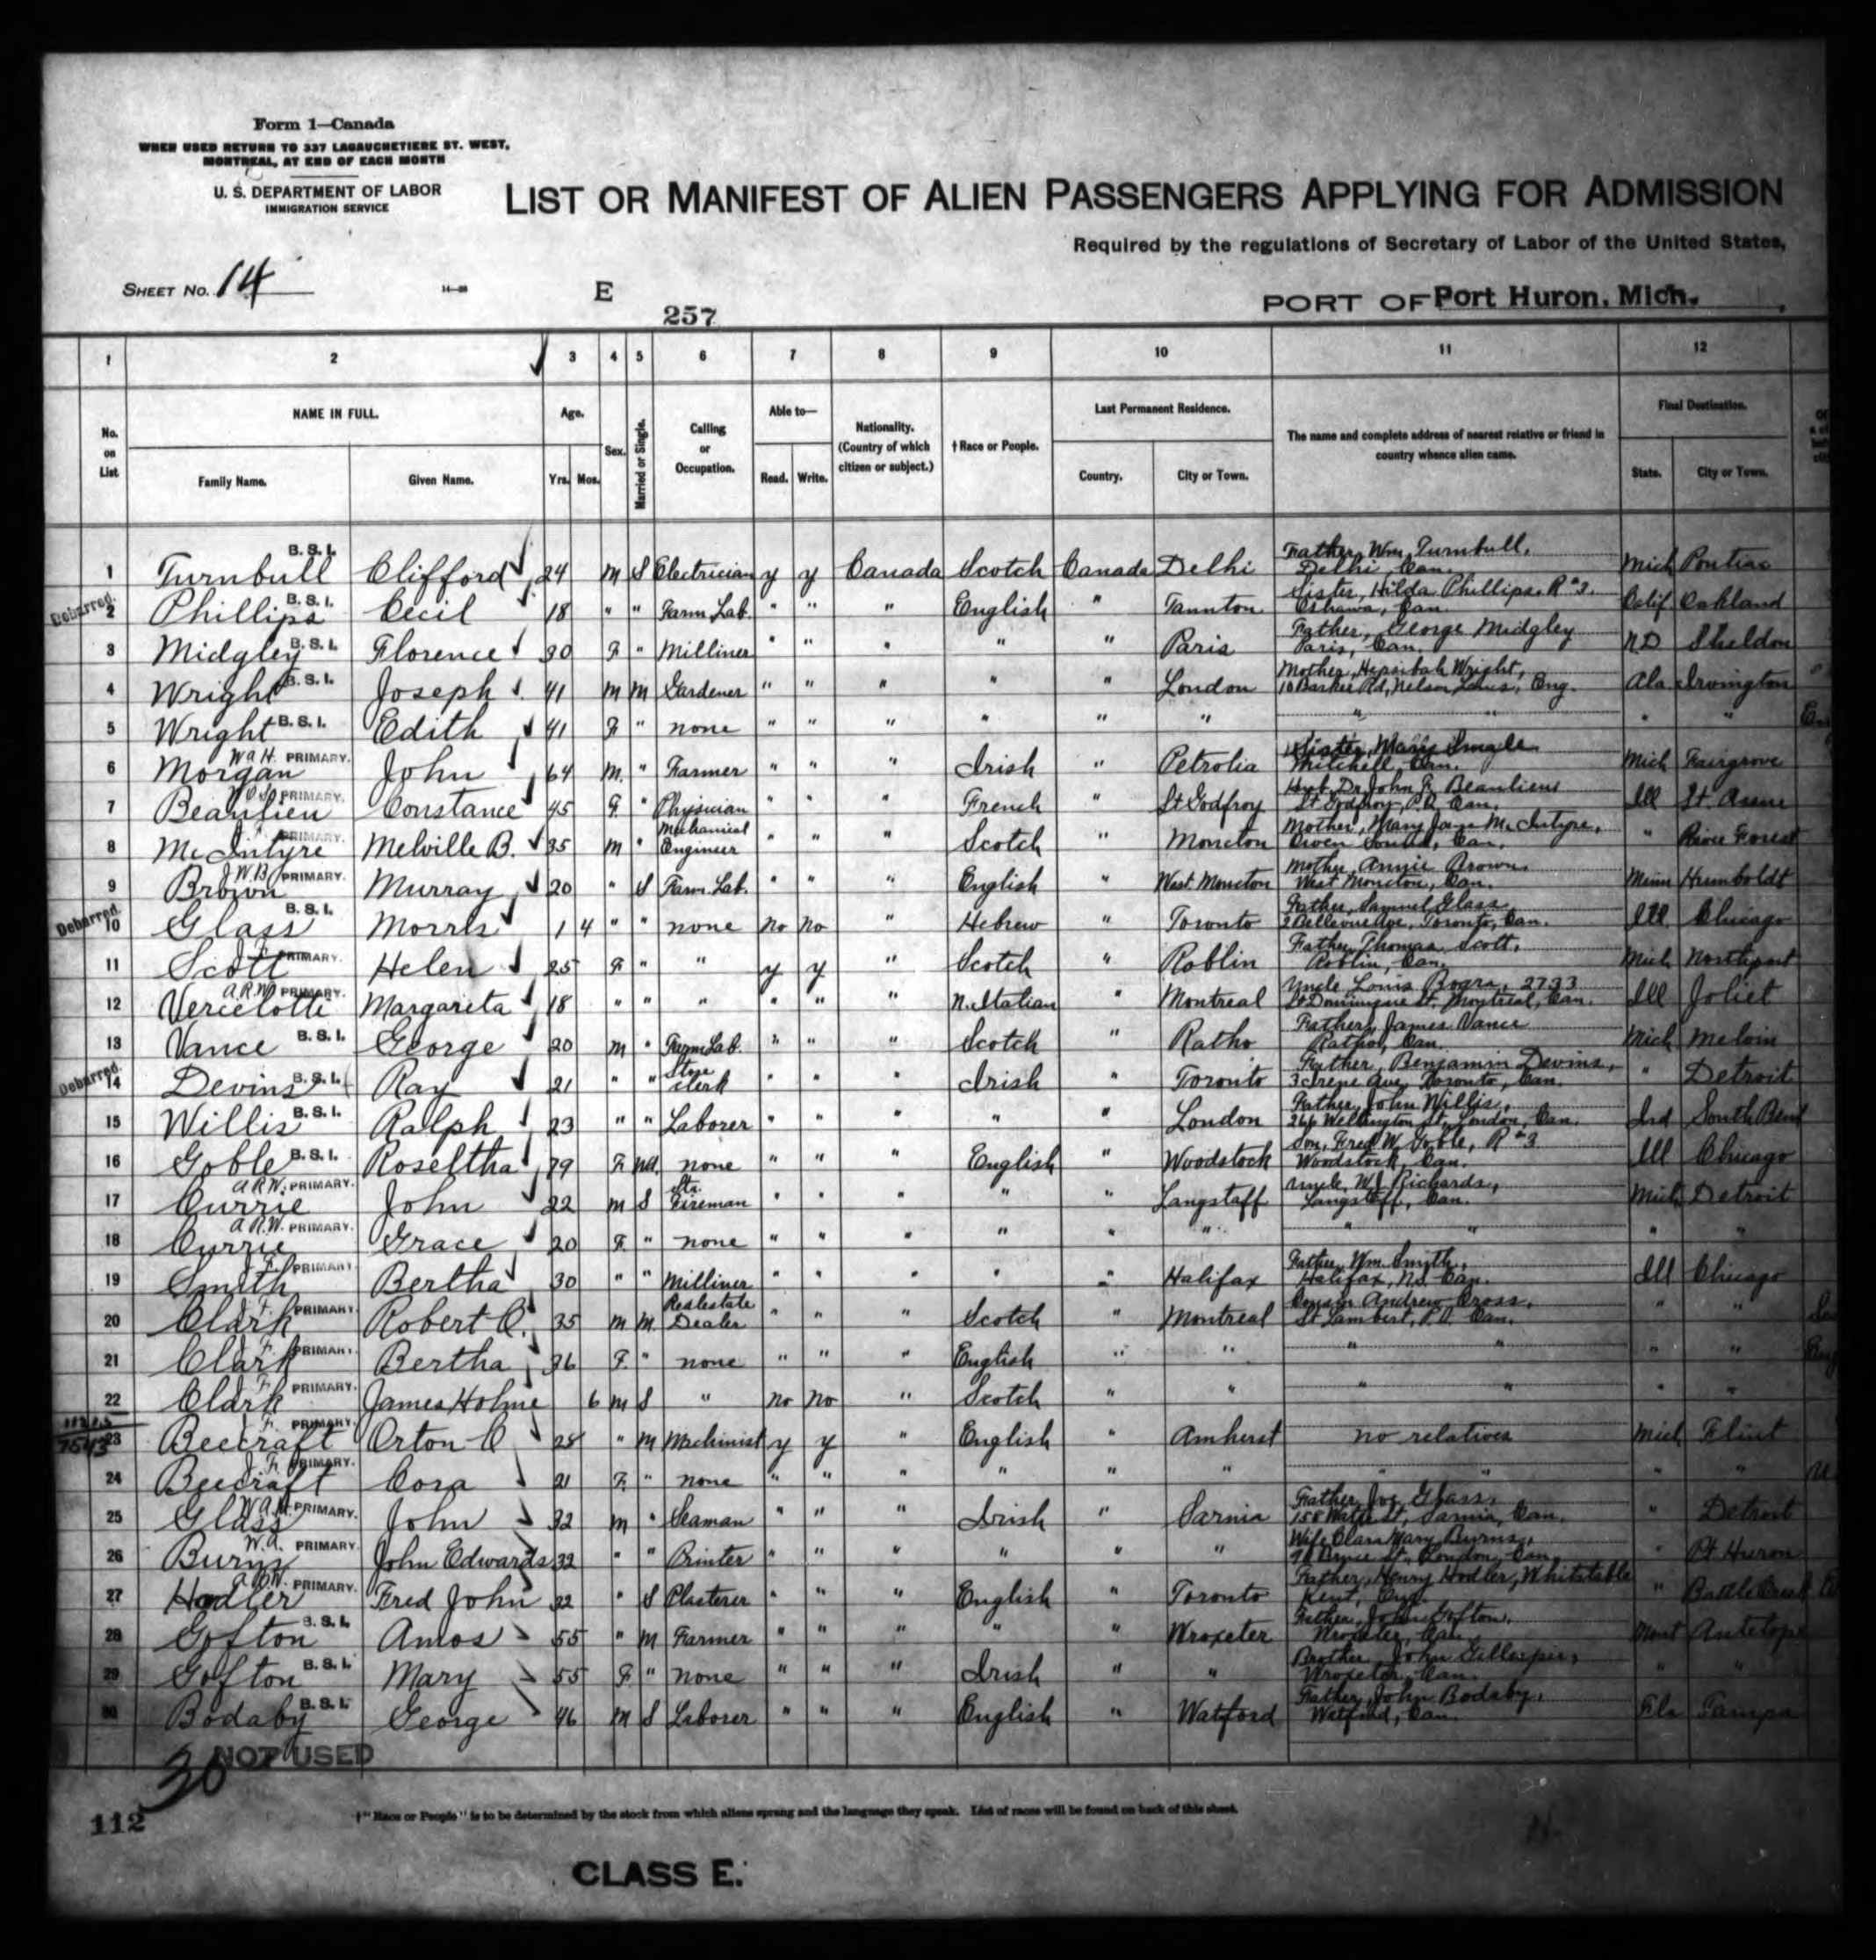 Form 1—Canada
WHEN USED RETURN TO 337 LAGAUCHETIERE ST. WEST,
MONTREAL, AT END OF EACH MONTH
U. S. DEPARTMENT OF LABOR
IMMIGRATION SERVICE
LIST OR MANIFEST OF ALIEN PASSENGERS APPLYING FOR ADMISSION
Required by the regulations of Secretary of Labor of the United States,
SHEET No. 14
E
257
PORT OF Port Huron, Mich.
1 2 3 4 5 6 7 8 9 10 11 12
No. on List.
NAME IN FULL.
Family Name. Given Name.
Age.
Yrs. Mos.
Sex.
Married or Single.
Calling or Occupation.
Able to—
Read. Write.
Nationality. (Country of which citizen or subject.)
† Race or People.
Last Permanent Residence.
Country. City or Town.
The name and complete address of nearest relative or friend in country whence alien came.
Final Destination.
State. City or Town.
1 Turnbull B. S. I. Clifford 24 M S Electrician y y Canada Scotch Canada Delhi Father, Wm Turnbull, Delhi, Can. Mich Pontiac
Debarred. 2 Phillips B. S. I. Cecil 18 " " Farm Lab. " " " English " Taunton Sister, Hilda Phillips, R#3, Oshawa, Can. Calif Oakland
3 Midgley B. S. I. Florence 30 F " Milliner " " " " " Paris Father, George Midgley Paris, Can. ND Sheldon
4 Wright B. S. I. Joseph 41 M M Gardener " " " " " London Mother, Hepsibah Wright, Nelson, Eng. Ala Irvington
5 Wright B. S. I. Edith 41 F " none " " " " " " " " " "
6 Morgan W a H. PRIMARY. John 64 M. " Farmer " " " Irish " Petrolia Sister, Mary Smale Mitchell, Can. Mich Fairgrove
7 Beaulieu PRIMARY. Constance 45 F. " Physician " " " French " St Godfroy Husb. Dr. John F. Beaulieu St Godfroy, P.Q. Can. Ill St. Anne
8 McIntyre PRIMARY. Melville B. 35 M " Mechanical Engineer " " " Scotch " Moncton Mother, Mary Jane McIntyre, Owen Sound, Can. " River Forest
9 Brown J.W.B. PRIMARY. Murray 20 " S Farm Lab. " " " English " West Moncton Mother, Annie Brown, West Moncton, Can. Minn Humboldt
Debarred. 10 Glass B. S. I. Morris 1 4 " " none no no " Hebrew " Toronto Father, Samuel Glass, 2 Bellevue Ave, Toronto, Can. Ill Chicago
11 Scott PRIMARY. Helen 25 F " " y y " Scotch " Roblin Father, Thomas Scott, Roblin, Can. Mich Northport
12 Vercelotti A.R.W. PRIMARY. Margareta 18 " " " " " " N. Italian " Montreal Uncle Louis Bogra, 2733 St Dominique St, Montreal, Can. Ill Joliet
13 Vance B. S. I. George 20 M " Farm Lab. " " " Scotch " Ratho Father, James Vance Ratho, Can. Mich Melvin
Debarred. 14 Devins B. S. I. Ray 21 " " Store clerk " " " Irish " Toronto Father, Benjamin Devins, 3 Irene Ave, Toronto, Can. " Detroit
15 Willis B. S. I. Ralph 23 " " Laborer " " " " " London Father, John Willis, Wellington St, London, Can. Ind South Bend
16 Goble B. S. I. Roseltha 79 F Wd. none " " " English " Woodstock Son, Fred W. Goble, R#3 Woodstock, Can. Ill Chicago
17 Currie A.R.W. PRIMARY. John 22 M S Sta. Fireman " " " " " Langstaff Uncle, W.J. Richards, Langstaff, Can. Mich Detroit
18 Currie A.R.W. PRIMARY. Grace 20 F. " none " " " " " " " " " "
19 Smith PRIMARY. Bertha 30 " " Milliner " " " " " Halifax Father, Wm. Smyth, Halifax, NS. Can. Ill Chicago
20 Clark PRIMARY. Robert C. 35 M M. Real estate Dealer " " " Scotch " Montreal Cousin Andrew Cross, St Lambert, P.Q. Can. " "
21 Clark PRIMARY. Bertha 36 F. " none " " " English " " " " " "
22 Clark PRIMARY. James Holme 6 M S " no no " Scotch " " " " " "
23 Beecraft PRIMARY. Orton C 28 " M Machinist y y " English " Amherst no relatives Mich Flint
24 Beecraft PRIMARY. Cora 21 F. " none " " " " " " " " " "
25 Glass W.A.H. PRIMARY. John 32 M " Seaman " " " Irish " Sarnia Father, Jos. Glass, St, Sarnia, Can. " Detroit
26 Burns W.A. PRIMARY. John Edwards 32 " " Printer " " " " " " Wife Clara Mary Burns, Bruce St. London, Can " Pt Huron
27 Hodler A.R.W. PRIMARY. Fred John 22 " S Plasterer " " " English " Toronto Father, Henry Hodler, Whitstable Kent, Eng. " Battle Creek
28 Gofton B. S. I. Amos 55 " M Farmer " " " " " Wroxeter Father, John Gofton, Wroxeter, Can. Mont Antelope
29 Gofton B. S. I. Mary 55 F " none " " " Irish " " Brother, John Gillespie, Wroxeter, Can. " "
30 Bodaby B. S. I. George 46 M S Laborer " " " English " Watford Father, John Bodaby, Watford, Can. Fla Tampa
NOT USED
30
112
†"Race or People" is to be determined by the stock from which aliens sprang and the language they speak. List of races will be found on back of this sheet.
CLASS E.